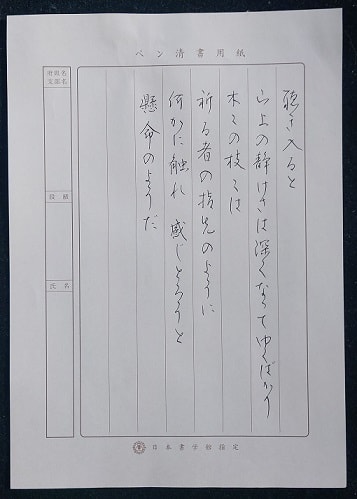 ペン清書用紙
所属名
支部名
段級
氏名
聴き入ると
山上の静けさは深くなってゆくばかり
木々の枝々は
祈る者の指先のように
何かに触れ 感じとろうと
懸命のようだ
日本書学館指定